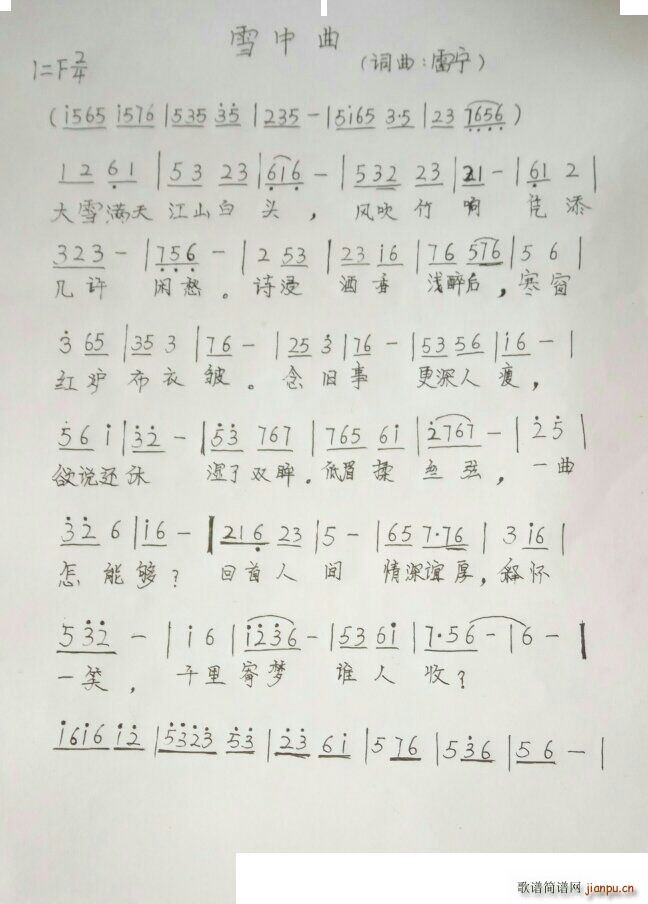 雪中曲
1=F 2/4
(词曲:雷宁)
(i565 i576 | 535 35 | 235 - | 5i65 3·5 | 23 7656)
12 61 | 53 23 | 616 - | 532 23 | 21 - | 61 2 |
大雪满天 江山白 头, 风吹 竹 啊 凭 添
323 - | 756 - | 2 53 | 23 i6 | 76 576 | 5 6 |
几许 闲愁。诗漫 酒香 浅醉后, 寒窗
3 65 | 35 3 | 76 - | 25 3 | 76 - | 53 56 | i6 - |
红炉 布衣 皱。念旧事 更深人瘦,
56 i | 32 - | 53 767 | 765 6i | 2767 - | 2 5 |
欲说还休 湿了双眸。低眉揉 丝弦, 一曲
32 6 | i6 - | 216 23 | 5 - | 65 7·76 | 3 i6 |
怎能够? 回首人间 情深谊厚, 释怀
532 - | i 6 | i236 - | 53 6i | 7·56 - | 6 - |
一笑, 千里 寄梦 谁人收?
i6i6 i2 | 5323 53 | 23 6i | 5 76 | 536 | 56 - |
歌谱简谱网 jianpu.cn